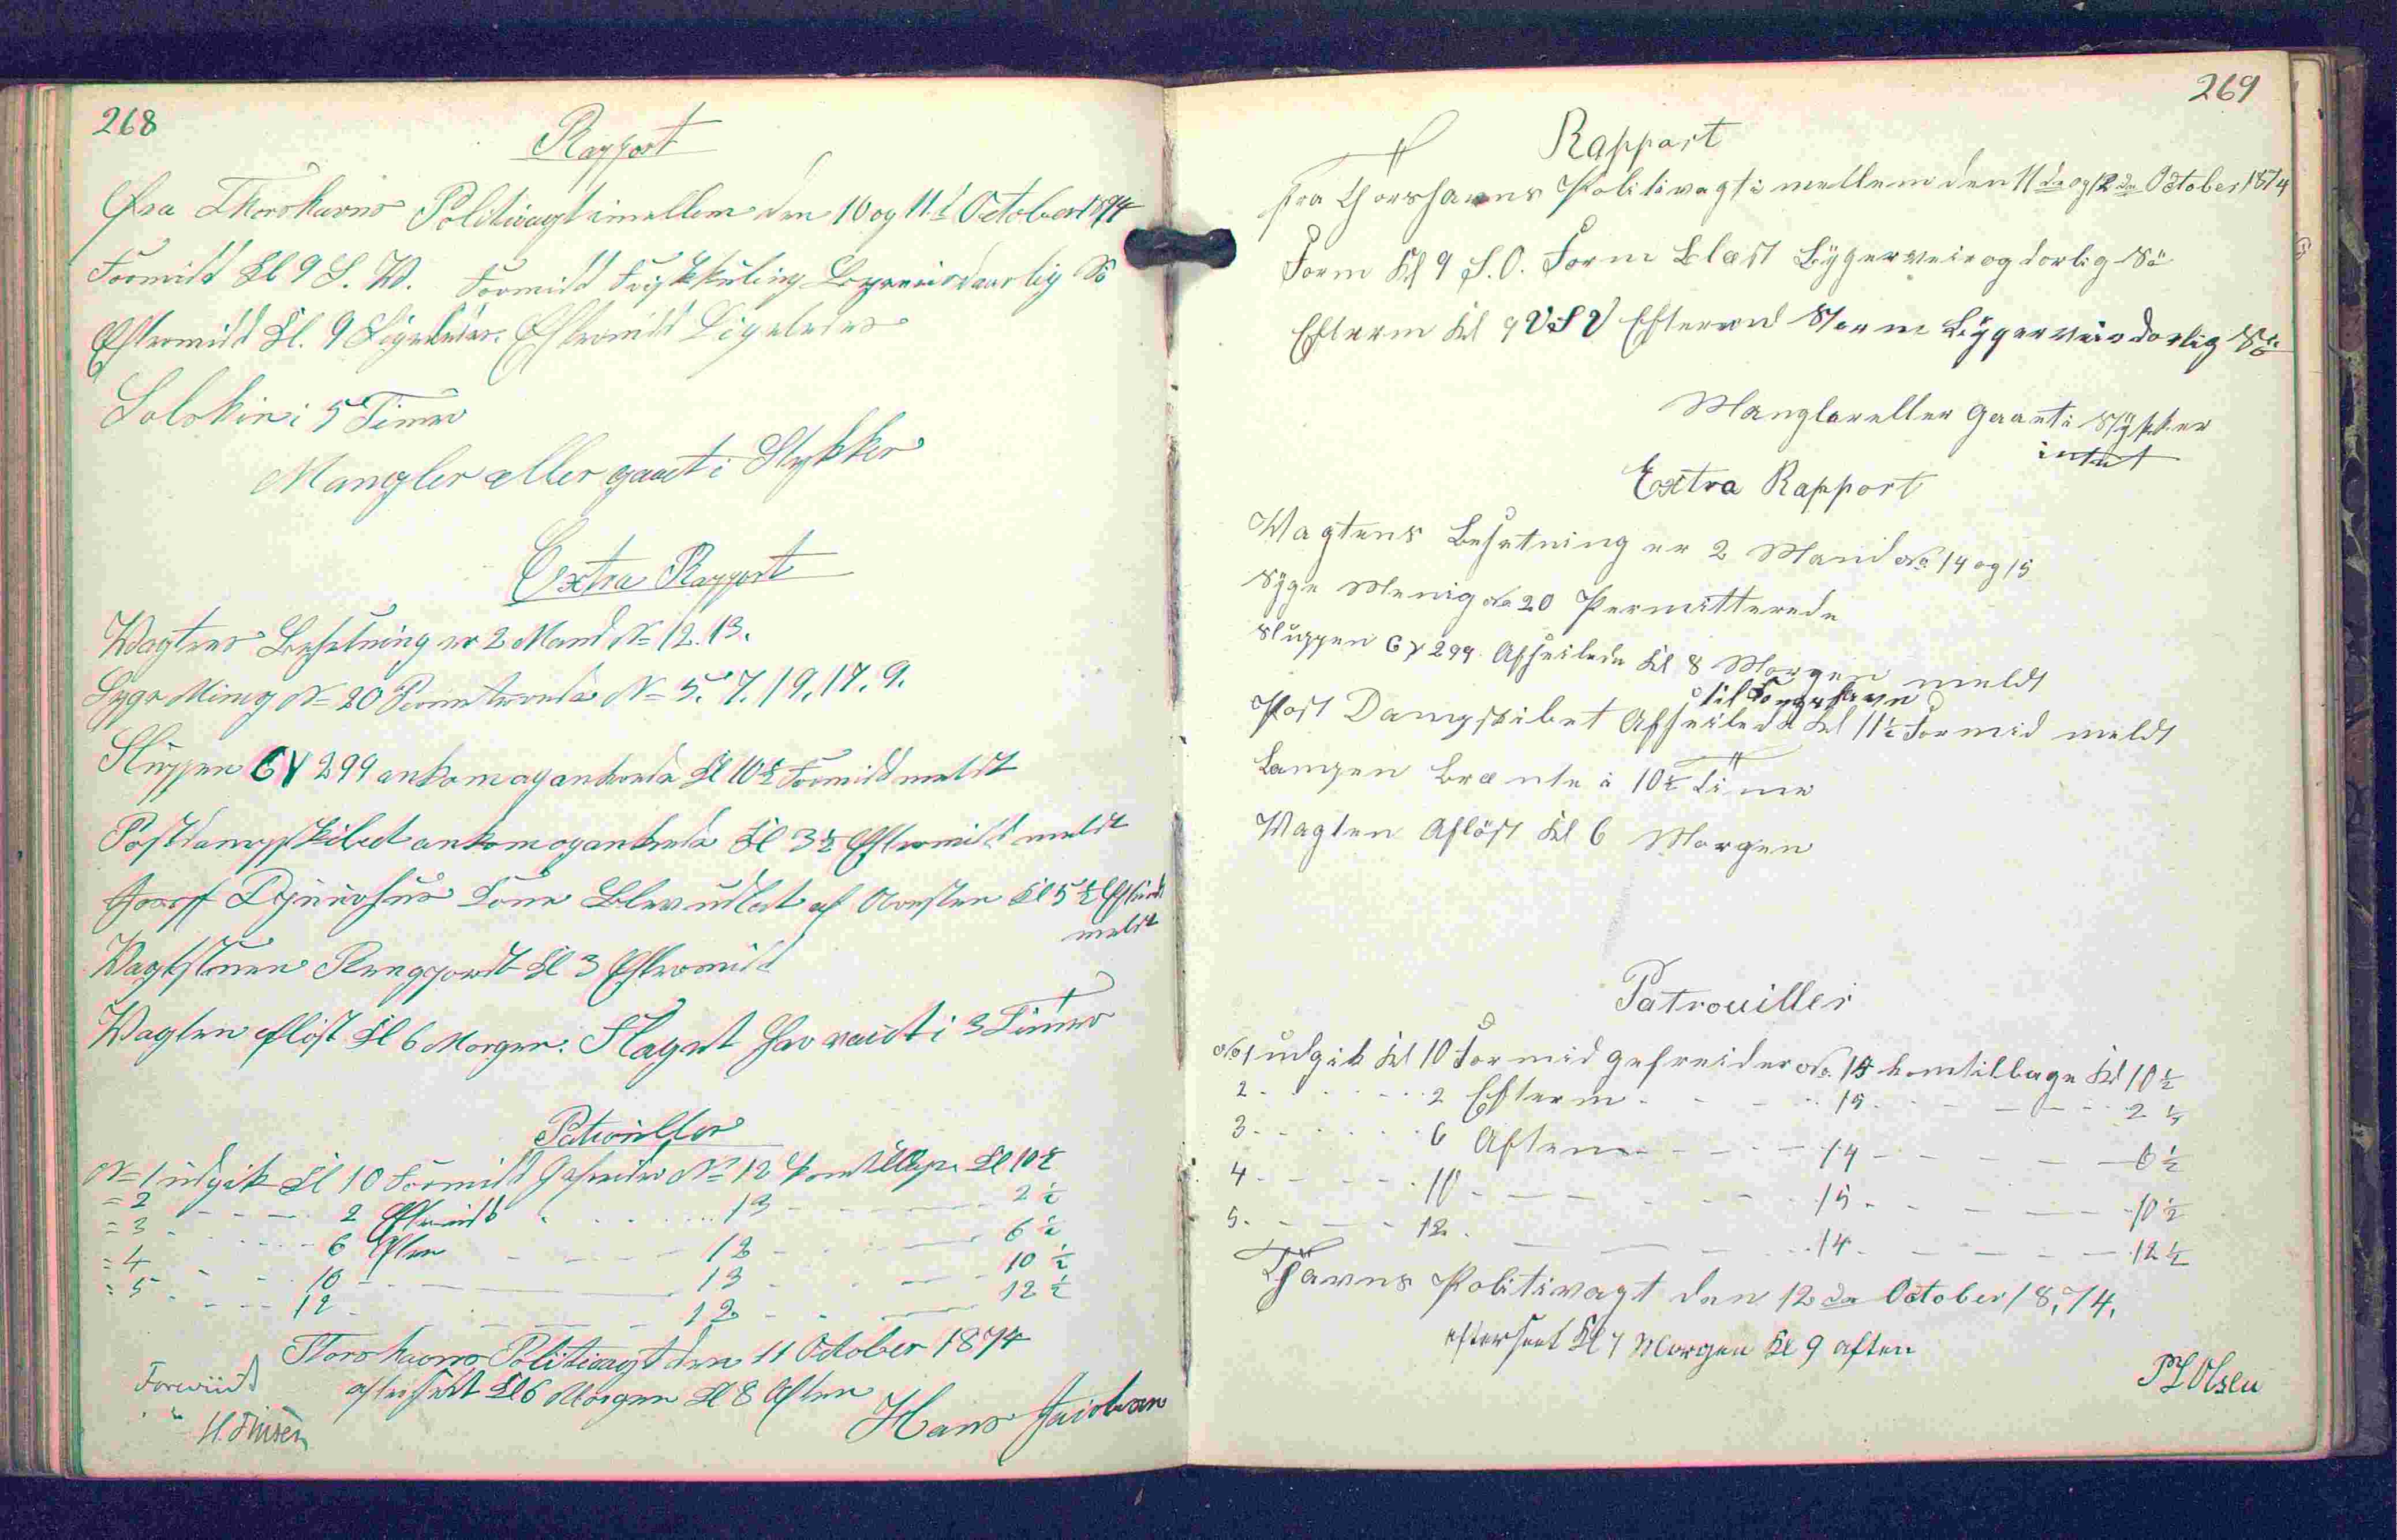 268
Rapport
Fra Thorshavns Politivagt imellem den 10 og 11d October 1874
Formidd Kl 9 S. W. Formidd Friskkuling Bygeveir daarlig Sö
Eftermidd Kl. 9 Ligeledes. Eftermidd Ligeledes
Solskin i 5 Timer
Mangler eller gaaet i Stykker
Extra Rapport
Vagtens Besetning er 2 Mand No 12. 13.
Syge Menig No 20 Permiterede No 5. 7. 19. 17. 9.
Sluppen GY 299 ankom og ankrede Kl 10½ Formidd meldt
Postdampskibet ankom og ankrede Kl 3½ Eftermidd meldt
Kone Blev udladt af Aresten Kl 5½ Efterm
meldt
Vagtstuen Rengjordt Kl 3 Eftermidd
Vagten aflöst Kl 6 Morgen. Flaget har vaiet i 3 Timer
Patrouiller
No 1 udgik Kl 10 Formidd Gefreider No 12 komtilbage Kl 10½
= 2 - - - 2 Eftermidd - - - 13 - - - 2½
= 3 - - - 6 Aften - - - 12 - - - 6½
= 4 - - - 10 - - - 13 - - - 10½
= 5 - - - 12 - - - 12 - - - 12½
Thorshavns Politivagt den 11 October 1874
Forevist efterseet Kl 6 Morgen Kl 8 Aften
Hans Jacobsen
269
Rapport
fra Thorshavns Politivagt i mellem den 11de og 12de October 1874
Form Kl 9 S.O. Form Blæst Bÿgerveir og dorlig Sö
Efterm Kl 9 V.S.V Efterm Storm Bÿgerveir dorlig Sö
Mangler eller Gaaet i Stÿkker
intet
Extra Rapport
Wagtens Besetning er 2 Mand No 14 og 15
Sÿge Menig No 20 Permitterede
Sluppen GY 299. Afseilede Kl 8 Morgen meldt
til
Post Dampskibet Afseilede Kl 11½ Formid meldt
Lampen Brænte i 10½ Time
Wagten Aflöst Kl 6 Morgen
Patrouiller
No 1 udgik Kl 10 Formid gefreider No 14 komtilbage Kl 10½
2 - - - 2 Efterm - - - 15 - - - 2½
3 - - - 6 Aften - - - 14 - - - 6½
4 - - - 10 - - - 15 - - - 10½
5 - - - 12 - - - 14 - - - 12½
Thavns Politivagt den 12de October 18,74.
efterseet Kl 7 Morgen Kl 9 aften
Olsen